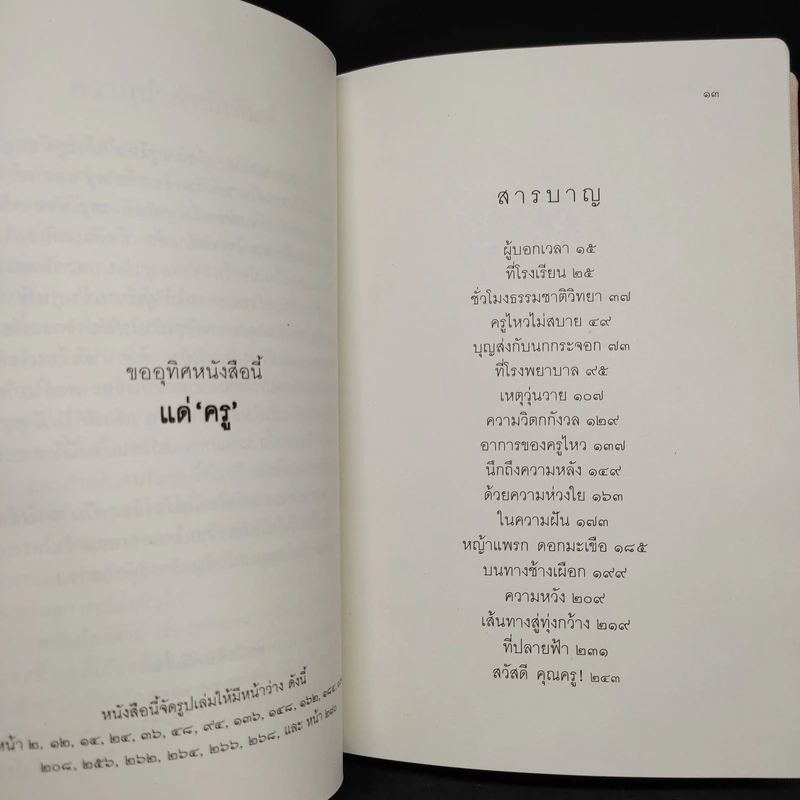 ขออุทิศหนังสือนี้
แด่ ‘ครู’
หนังสือนี้จัดรูปเล่มให้มีหน้าว่าง ดังนี้
หน้า ๒, ๑๒, ๑๔, ๒๔, ๓๖, ๔๘, ๙๔, ๑๓๖, ๑๔๘, ๑๖๒, ๑๘๔,
๒๐๘, ๒๕๖, ๒๖๒, ๒๖๔, ๒๖๖, ๒๖๘, และ หน้า
๑๓
สารบาญ
ผู้บอกเวลา ๑๕
ที่โรงเรียน ๒๕
ชั่วโมงธรรมชาติวิทยา ๓๗
ครูไหวไม่สบาย ๔๙
บุญส่งกับนกกระจอก ๗๓
ที่โรงพยาบาล ๙๕
เหตุวุ่นวาย ๑๐๗
ความวิตกกังวล ๑๒๙
อาการของครูไหว ๑๓๗
นึกถึงความหลัง ๑๔๙
ด้วยความห่วงใย ๑๖๓
ในความฝัน ๑๗๓
หญ้าแพรก ดอกมะเขือ ๑๘๕
บนทางช้างเผือก ๑๙๙
ความหวัง ๒๐๙
เส้นทางสู่ทุ่งกว้าง ๒๑๙
ที่ปลายฟ้า ๒๓๑
สวัสดี คุณครู! ๒๔๓